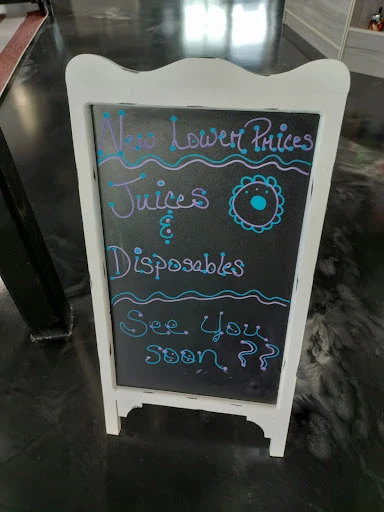 New Lower Prices
Juices
&
Disposables
See You
soon ??